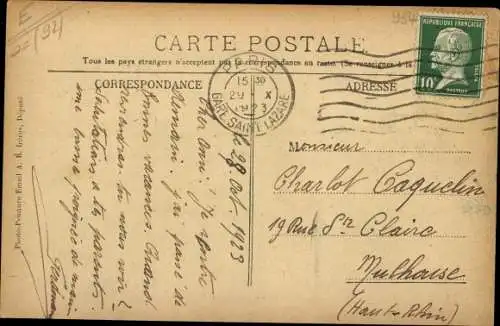 E
CARTE POSTALE
Tous les pays étrangers n'acceptent pas la correspondance au recto. (Se renseigner à la
CORRESPONDANCE
ADRESSE
PARIS
15 30
29 X
1923
GARE SAINT-LAZARE
REPUBLIQUE FRANÇAISE
10
POSTES
le 28 oct. 1923
Cher ami! Je rentre
demain. J'ai passé de
bonnes vacances. Quand
viendras tu nous voir?
Salutations à tes parents
une bonne poignée de main
Monsieur
Charlot Coquelin
19 Rue Ste Claire
Mulhouse
(Haut-Rhin)
Photo-Peinture Email A. R. brevet, Déposé